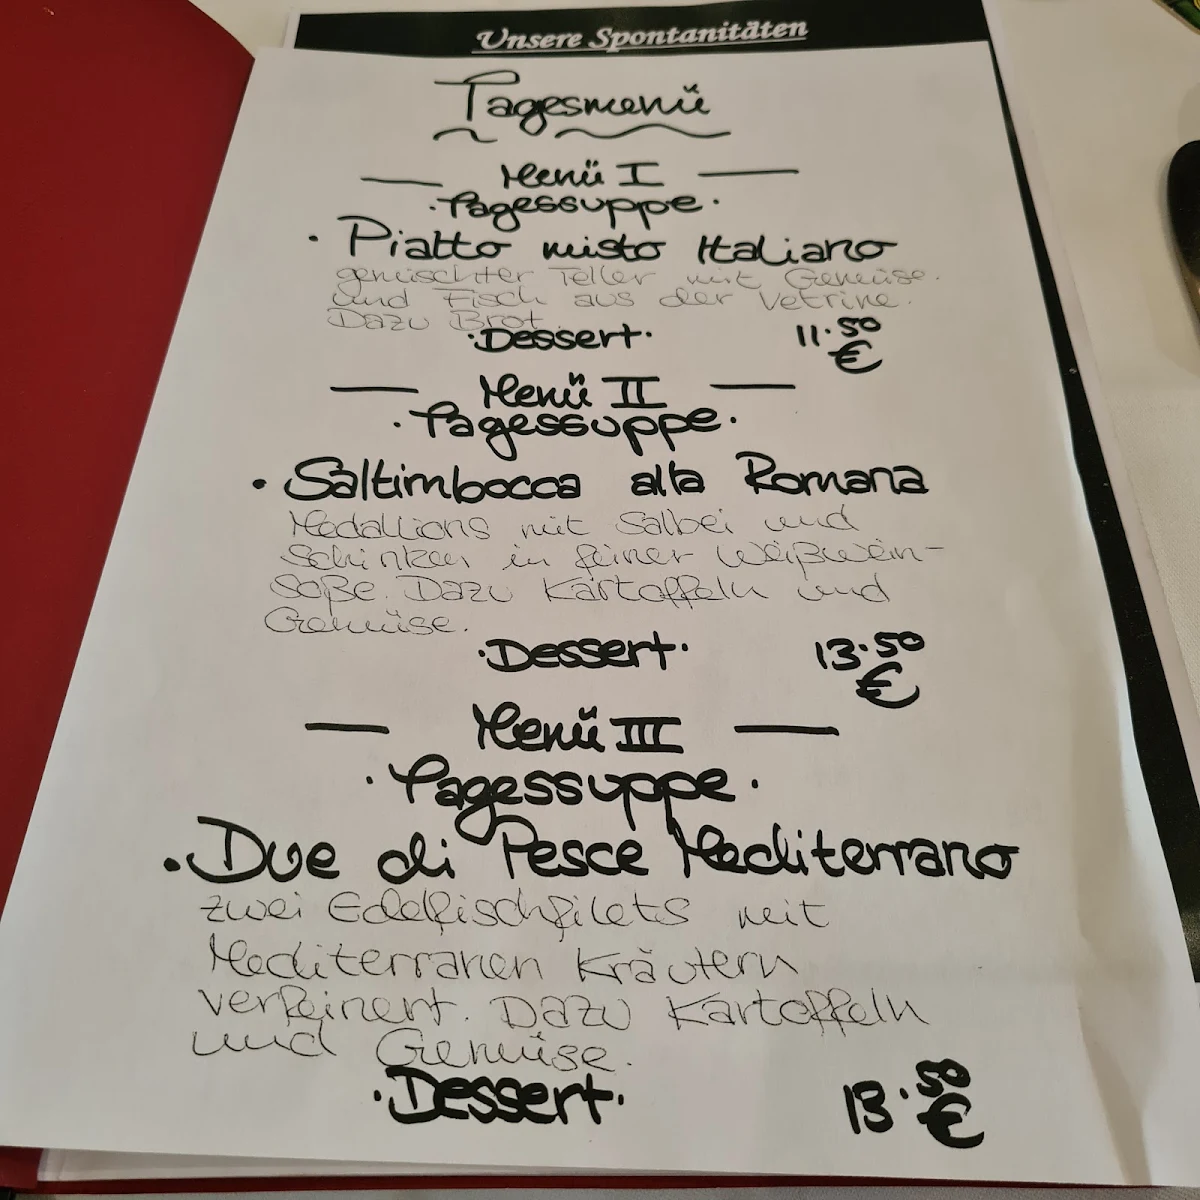 Unsere Spontanitäten
Tagesmenü
Menü I
· Tagessuppe ·
· Piatto misto Italiano
gemischter Teller mit Gemüse.
und Fisch aus der Vetrine.
Dazu Brot.
· Dessert ·
11.50
€
Menü II
· Tagessuppe ·
· Saltimbocca alla Romana
Medallions mit Salbei und
Schinken in feiner Weißwein-
soße. Dazu Kartoffeln und
Gemüse.
· Dessert ·
13.50
€
Menü III
· Tagessuppe ·
· Due di Pesce Mediterrano
zwei Edelfischfilets mit
Mediterranen Kräutern
verfeinert. Dazu Kartoffeln
und Gemüse.
· Dessert ·
13.50
€